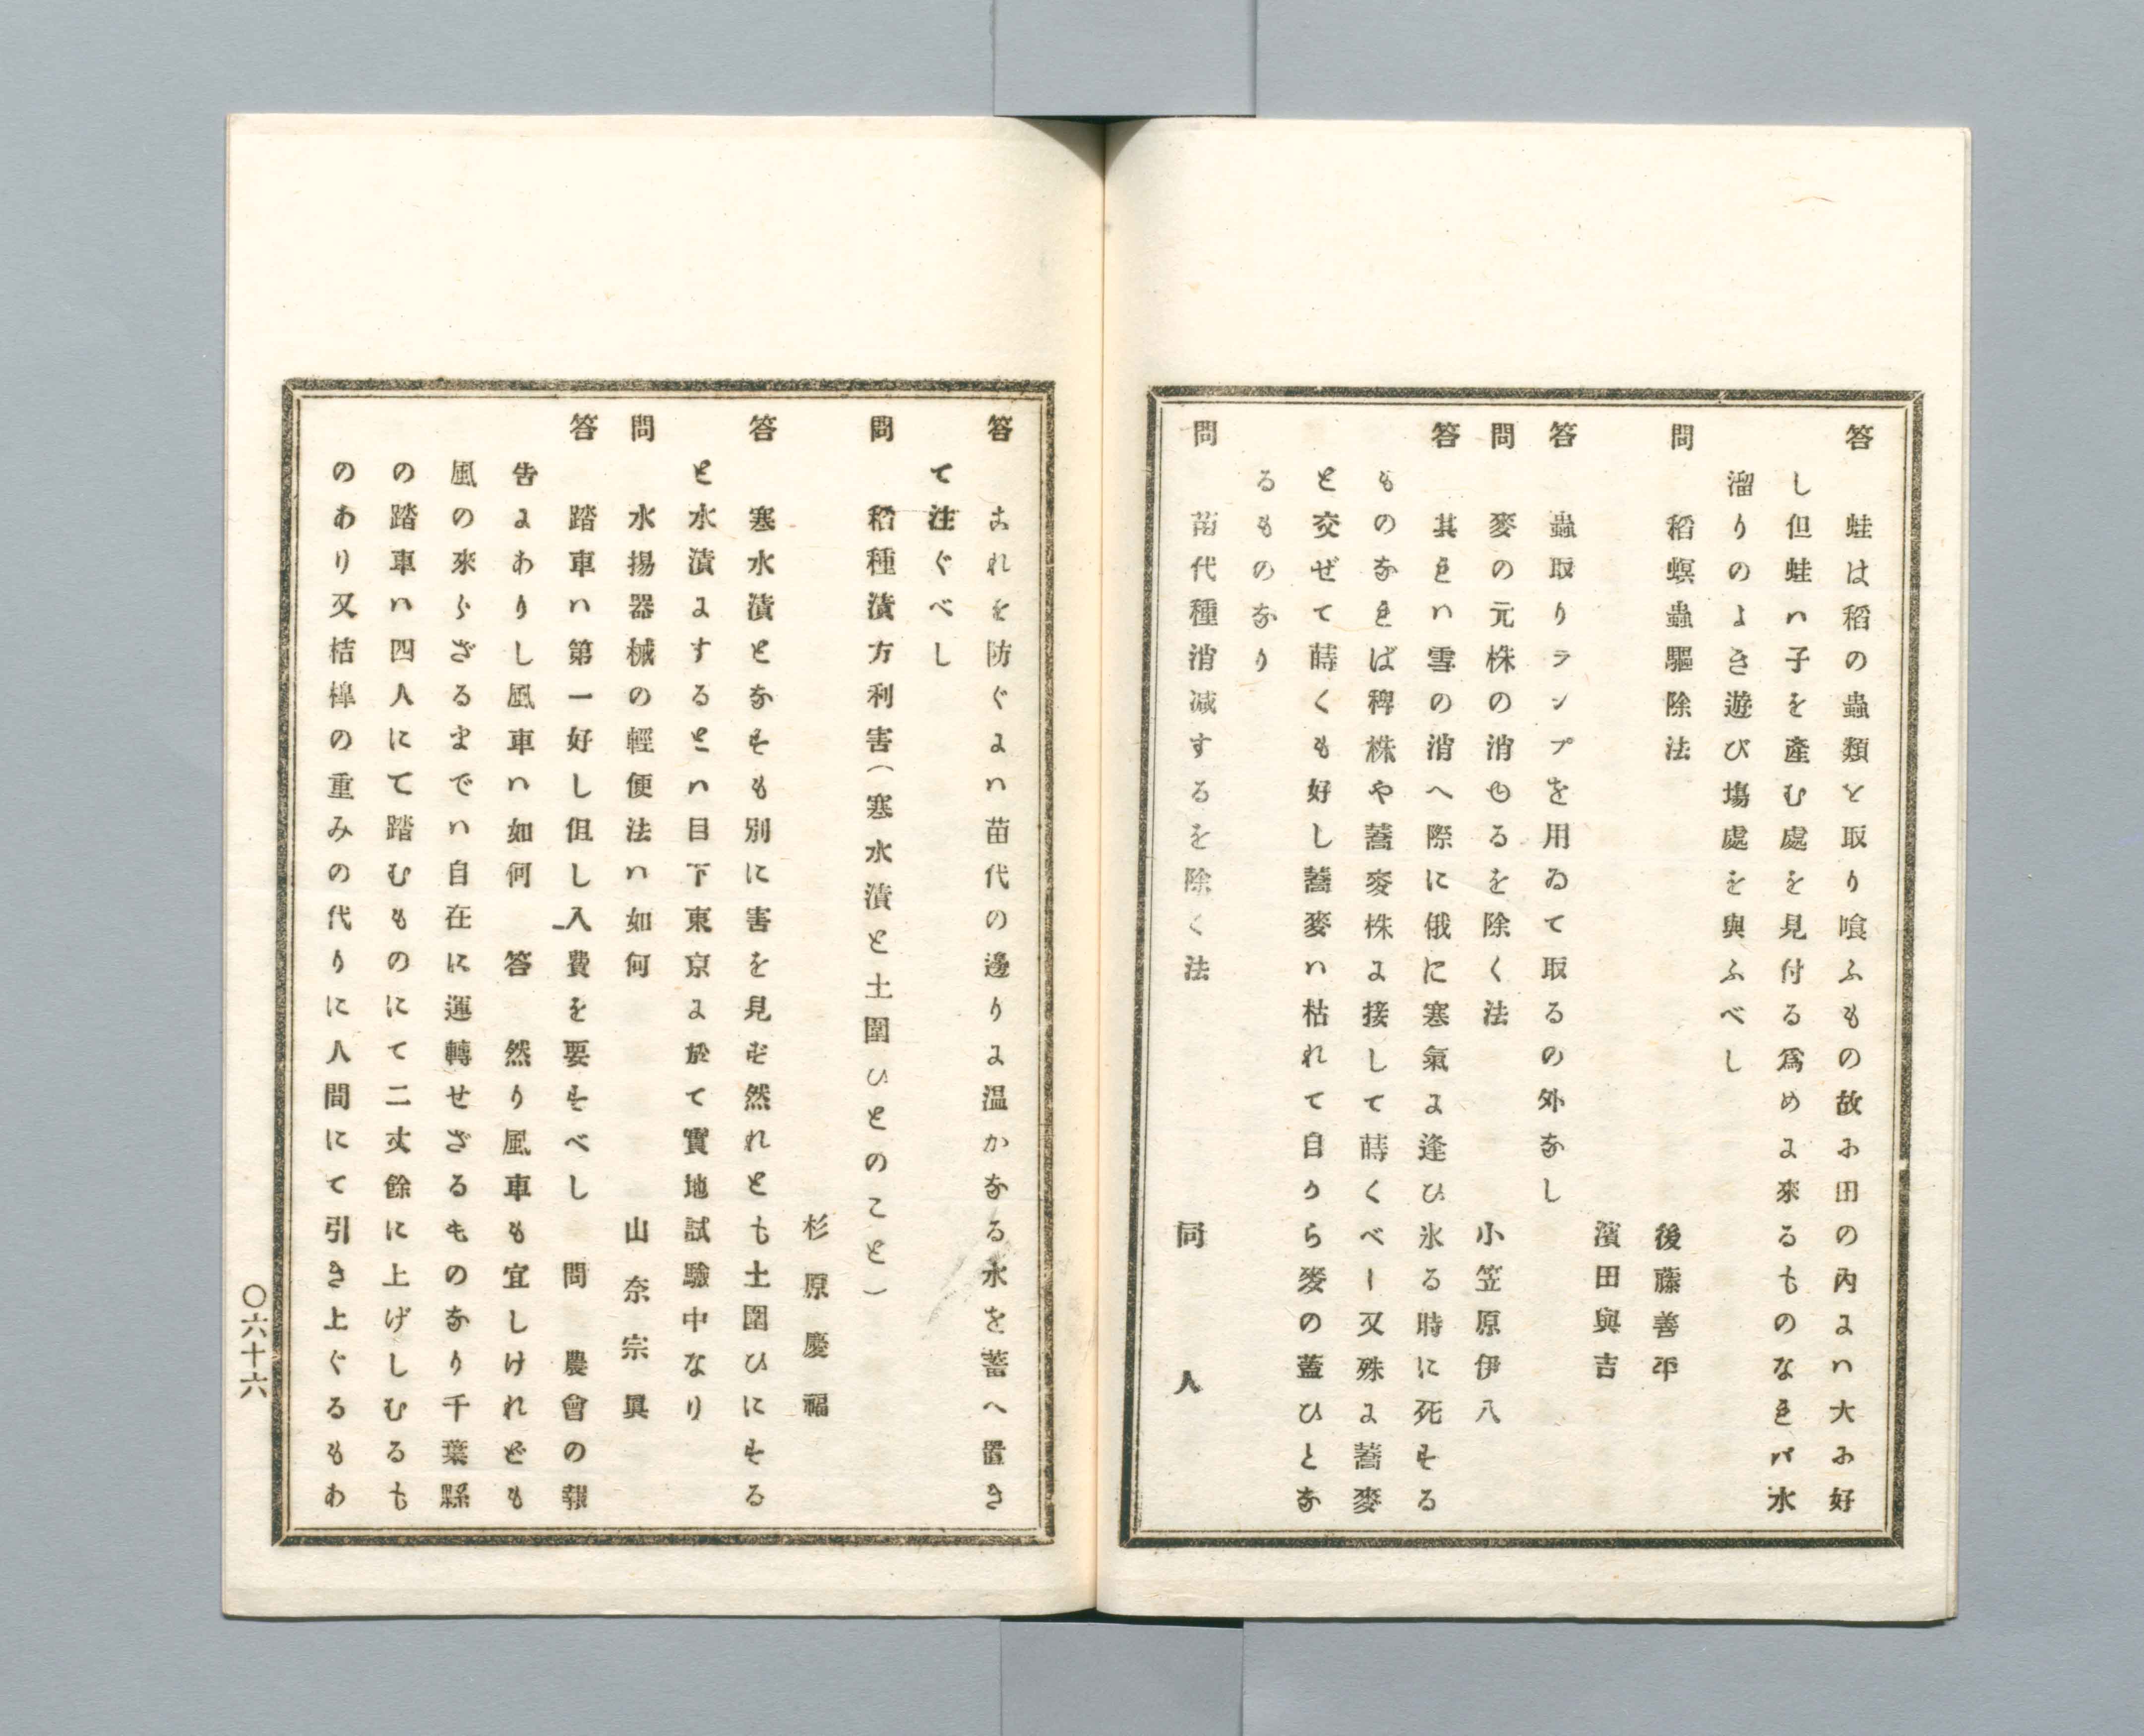 答　蛙は稻の蟲類を取り喰ふもの故に田の內には大に好
し但蛙は子を產む處を見付る爲めに來るものなれバ水
溜りのよき遊び塲處を與ふべし
問　稻螟蟲驅除法　後藤善平
濱田與吉
答　蟲取りランプを用ゐて取るの外なし
問　麥の元株の消ゆるを除く法　小笠原伊八
答　其れは雪の消へ際に俄に寒氣に逢ひ氷る時に死する
ものなれば稗株や蕎麥株に接して蒔くべし又殊に蕎麥
を交ぜて蒔くも好し蕎麥は枯れて自から麥の蓋ひとな
るものなり
問　苗代種消減するを除く法　同人
答　これを防ぐには苗代の邊りに温かなる水を蓄へ置き
て注ぐべし
問　稻種漬方利害（寒水漬と土圍ひとのこと）
杉原慶福
答　寒水漬となすも別に害を見ず然れとも土圍ひにする
と水漬にするとは目下東京に於て實地試驗中なり
問　水揚器械の輕便法は如何　山奈宗眞
答　踏車は第一好し但し入費を要すべし　問　農會の報
吿にありし風車は如何　答　然り風車も宜しけれども
風の來らざるまでは自在に運轉せざるものなり千葉縣
の踏車は四人にて踏むものにて二丈餘に上げしむるも
のあり又桔槹の重みの代りに人間にて引き上ぐるもあ
〇六十六